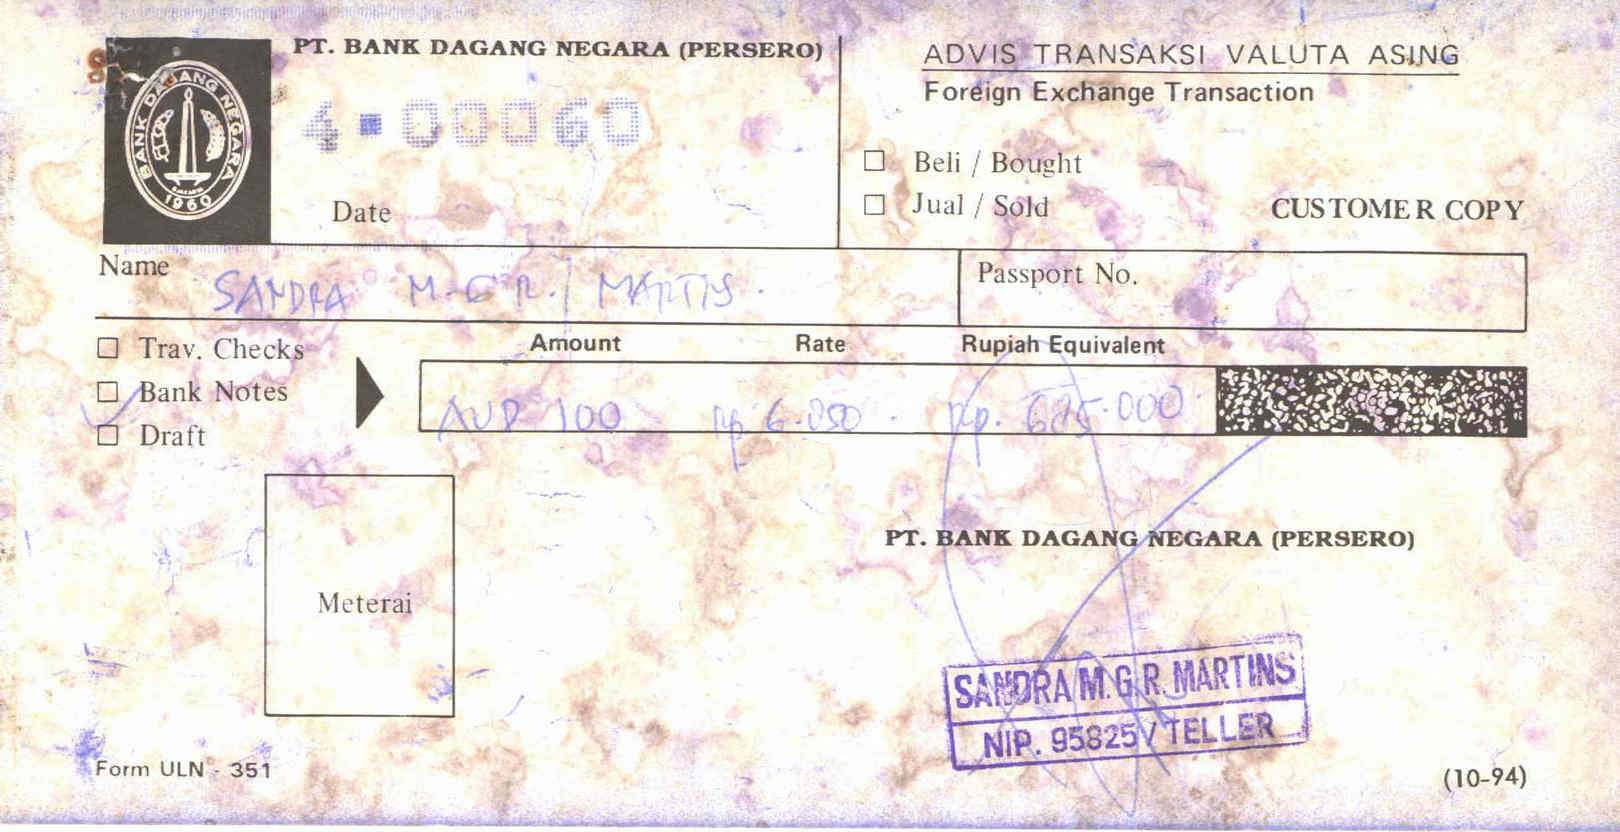 PT. BANK DAGANG NEGARA (PERSERO)
BANK DAGANG NEGARA
1960
Date
ADVIS TRANSAKSI VALUTA ASING
Foreign Exchange Transaction
Beli / Bought
Jual / Sold
CUSTOMER COPY
Name SANDRA M.G.R. MARTINS.
Passport No.
Trav. Checks
Bank Notes
Draft
Amount Rate Rupiah Equivalent
AUD 100 Rp 6.850 . Rp. 685.000
Meterai
PT. BANK DAGANG NEGARA (PERSERO)
SANDRA M.G.R. MARTINS
NIP. 95825 / TELLER
Form ULN - 351
(10-94)